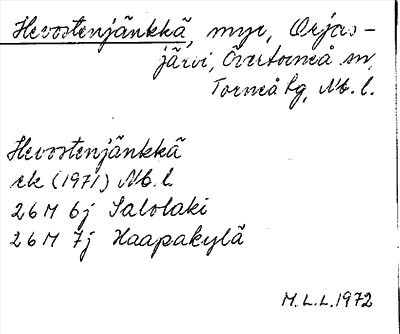 Hevostenjänkkä, myr, Orjas-
järvi, Övertorneå sn,
Torneå lg, Nb. l.
Hevostenjänkkä
ek (1971) Nb. l.
26M 6j Salolaki
26M 7j Haapakylä
M.L.L. 1972